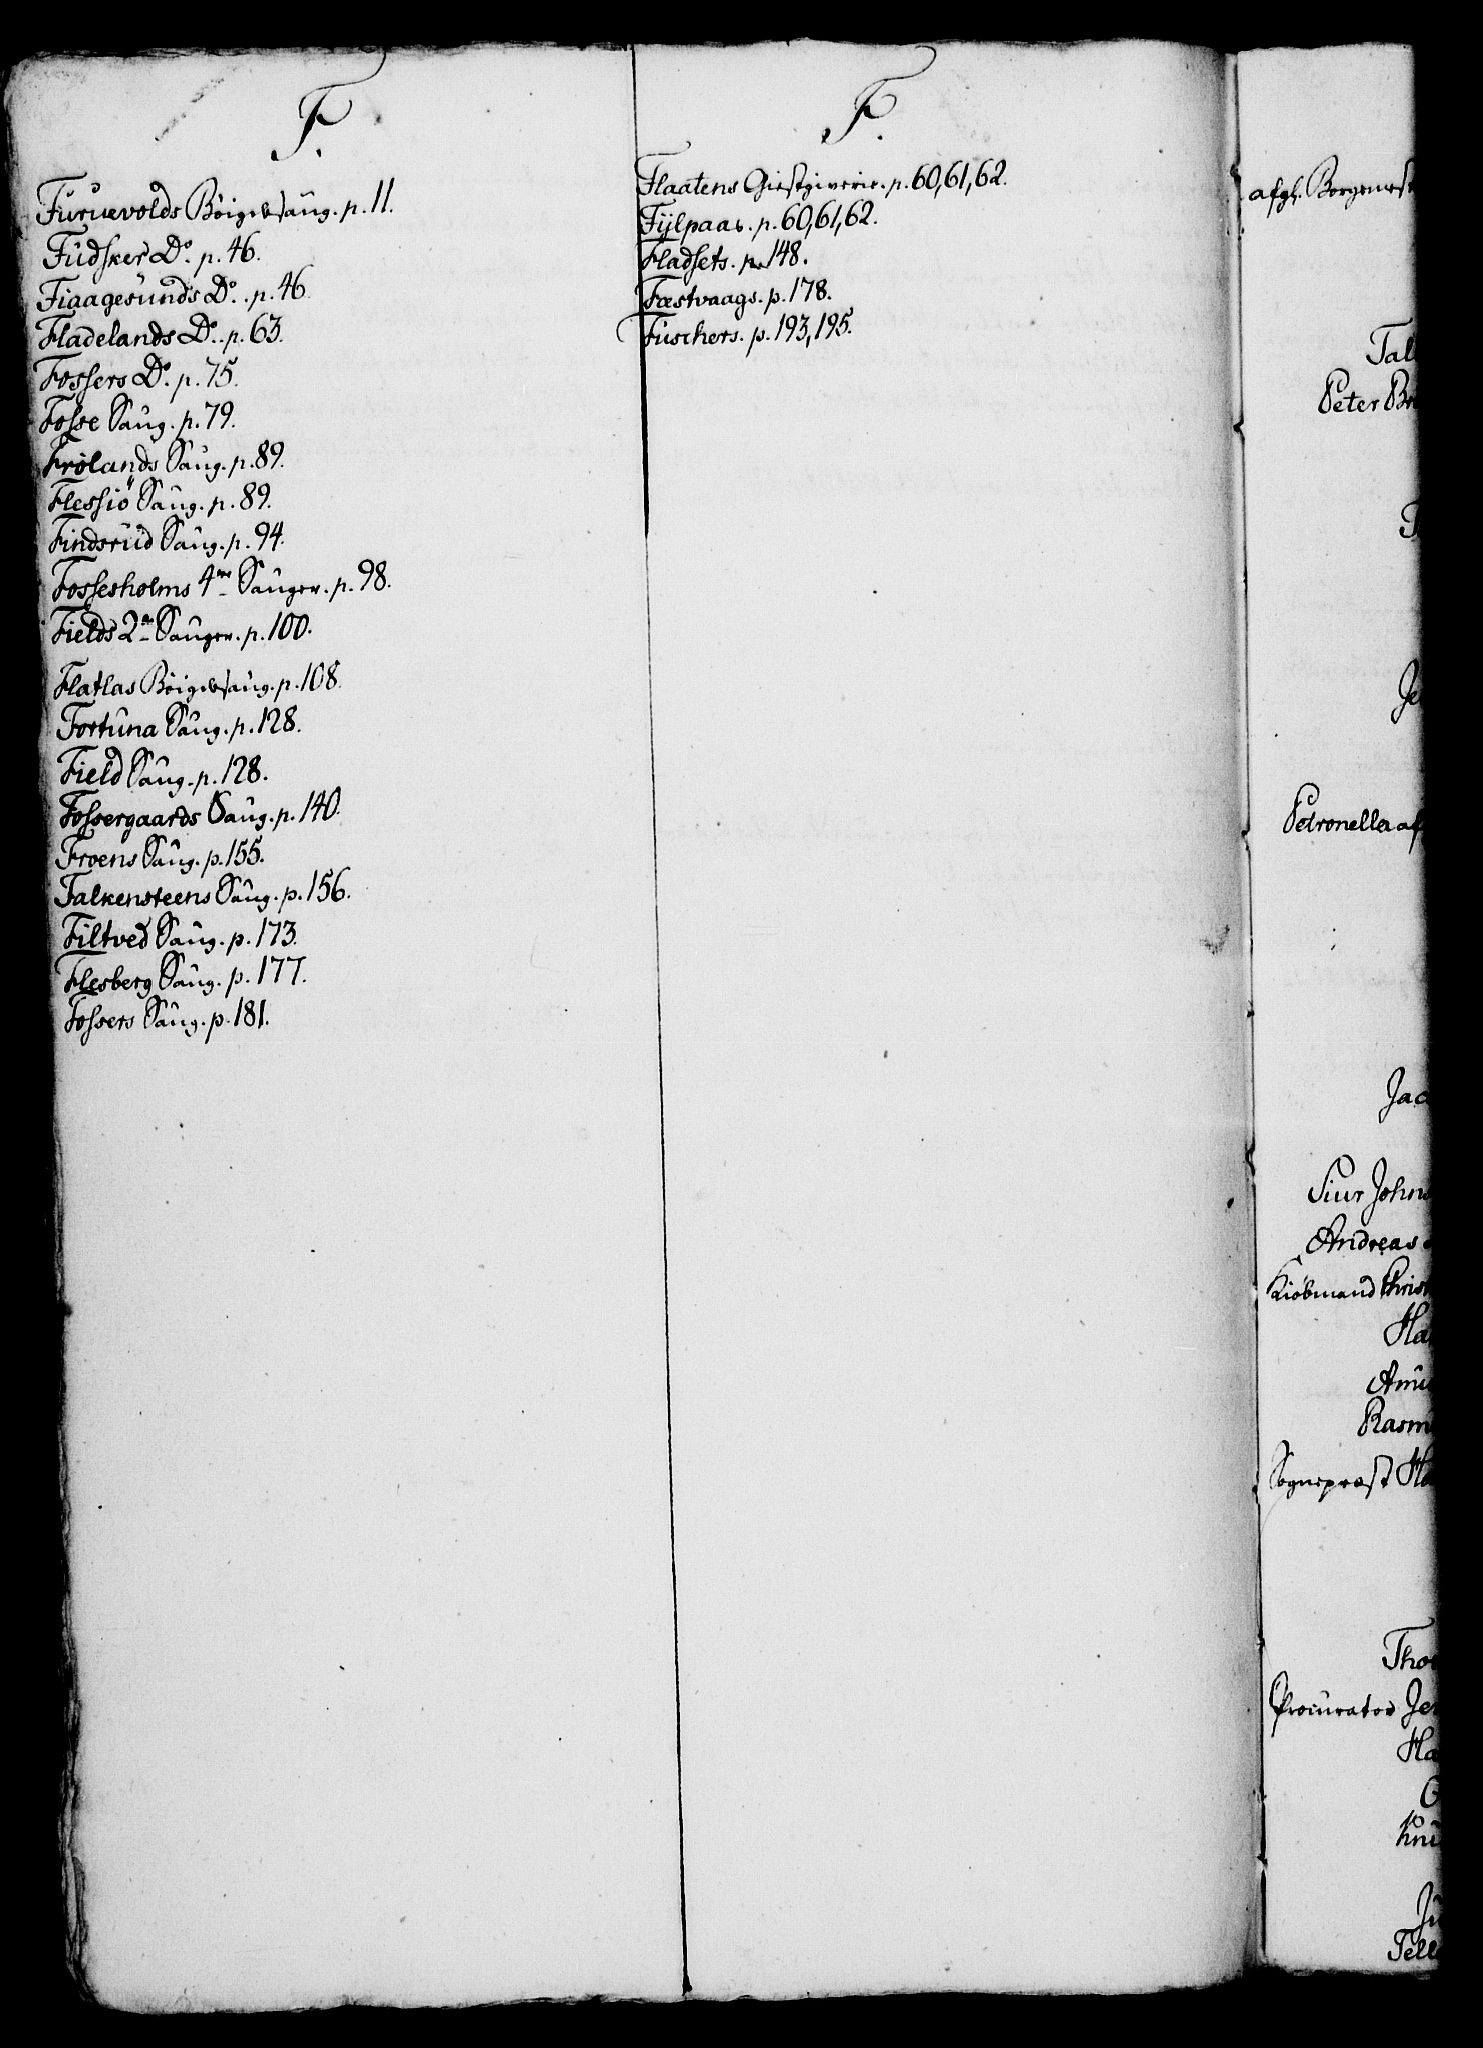 F.
Furuevolds Böigdesaug. p. 11.
Fudsker Do. p. 46.
Fiaagesunds Do. p. 46.
Fladelands Do. p. 63.
Fossers Do. p. 75.
Fosse Saug. p. 79.
Frölands Saug. p. 89.
Flessiö Saug. p. 89.
Findsrud Saug. p. 94.
Fossesholms 4re Sauger. p. 98.
Fields 2de Sauger. p. 100.
Flatlas Böigdesaug. p. 108.
Fortuna Saug. p. 128.
Field Saug. p. 128.
Fossergaards Saug. p. 140.
Froens Saug. p. 155.
Falkensteens Saug. p. 156.
Filtved Saug. p. 173.
Flesberg Saug. p. 177.
Fossers Saug. p. 181.
F.
Flaatens Giestgiverie. p. 60, 61, 62.
Fijlpaas. p. 60, 61, 62.
Fladsets. p. 148.
Fæstvaags. p. 178.
Fuschers. p. 193, 195.
afgl. Borgemest
Tal
Peter Br
Je
Petronella af
Jac
Siur Johns
Andreas
Kiöbmand Christ
Ha
Amu
Rasm
Sognepræst Ha
Tho
Procurator Jen
Ha
Knu
Ju
Tell